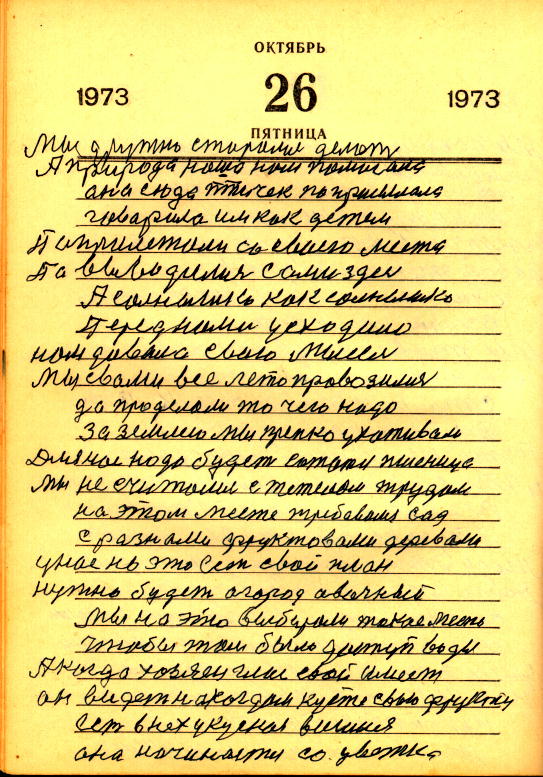 ОКТЯБРЬ
1973 26 1973
ПЯТНИЦА
Мы дружно старалися делат
А природа наша нам помогала
она сюда птичек поприсылала
говарила им как детем
Поприлетали со своего места
По выводилися сами здес
А солнышко как солнышко
Перед нами усходило
нам давала свою мысел
Мы свами все лето проводилися
да проделали то чего надо
За землею мы крепко ухаживали
Для нас надо будет пшеница
Мы не считалися с тежелом трудом
на этом месте требовался сад
с разнами фруктовами деревами
у нас на это ест свой план
нужно будет огород авошный
мы на это выбирали такое место
чтобы там было доступ воды
А когда хозяен глас свой имеет
он видет на каждам кусте свою фрукту
ест в них укусная вишня
она начинаится со цветка